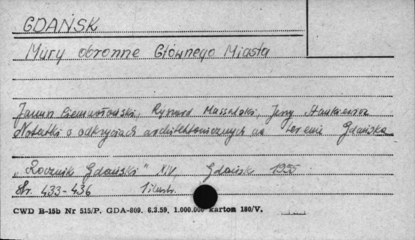 GDAŃSK
Mury obronne Głównego Miasta
Janusz Ciemnołoński, Ryszard Massalski, Jerzy Stankiewicz
Notatki o odkryciach architektonicznych na terenie Gdańska
„Rocznik Gdański" XIV, Gdańsk 1955
Str. 433-436 1 ilustr.
CWD B-15b Nr 515/P. GDA-809. 6.2.59. 1.000.000 karton 180/V.